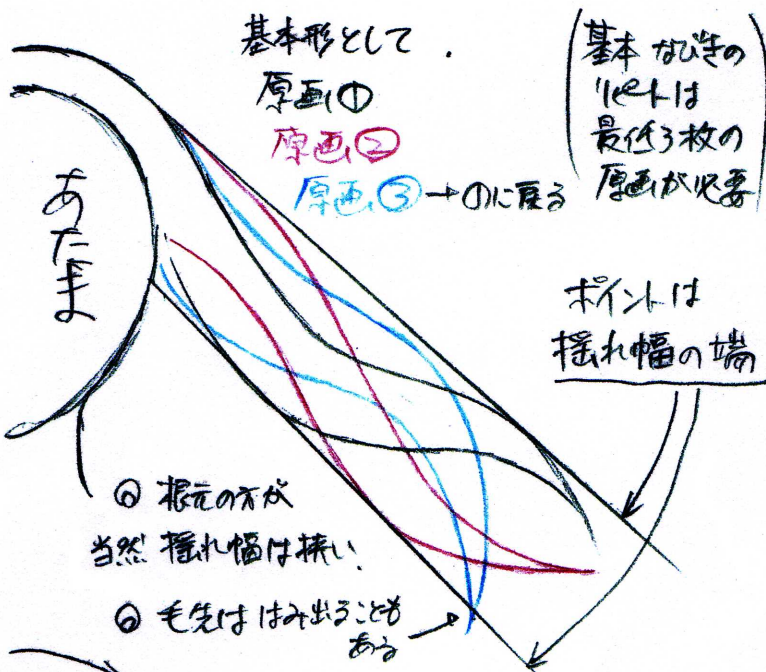 基本形として.
原画①
原画②
原画③→①に戻る
(基本 なびきの
リピートは
最低3枚の
原画が必要)
あたま
ポイントは
揺れ幅の端
◎ 根元の方が
当然 揺れ幅は狭い.
◎ 毛先は はみ出ることも
ある